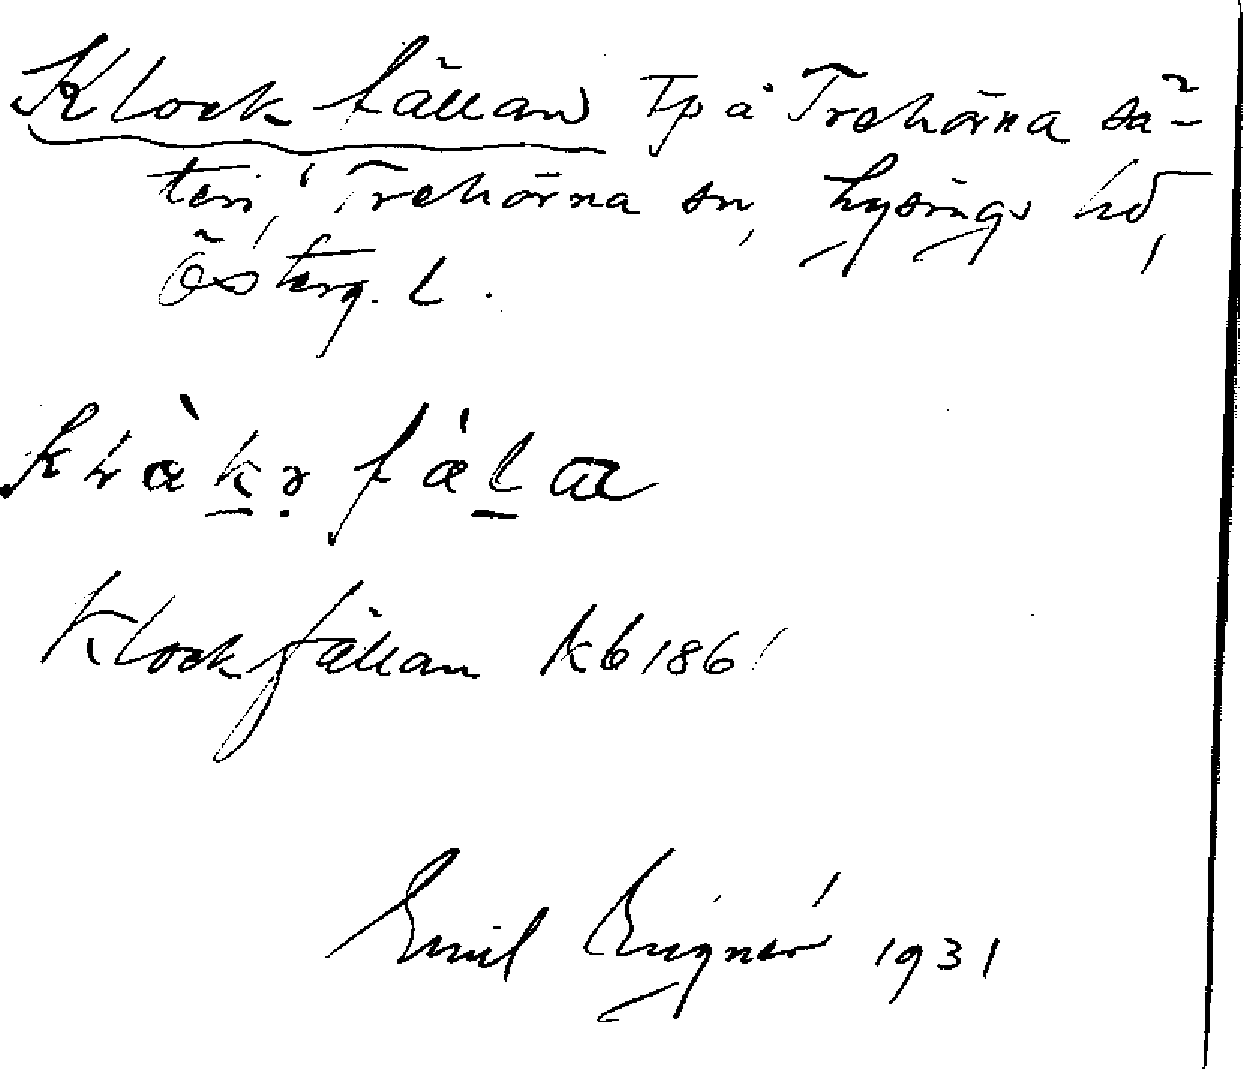 Klockfällan Tp å Trehörna sä-
teri, Trehörna sn, Lysings hd,
Österg. L.
Klockfällan kb 1861
Emil 1931